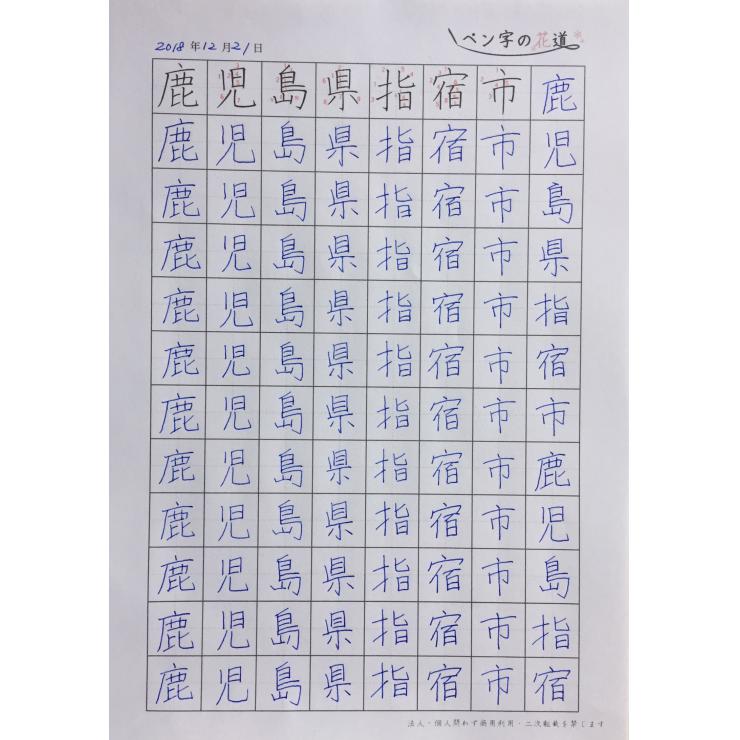 2018年12月21日
ペン字の花道
鹿児島県指宿市鹿
鹿児島県指宿市児
鹿児島県指宿市島
鹿児島県指宿市県
鹿児島県指宿市指
鹿児島県指宿市宿
鹿児島県指宿市市
鹿児島県指宿市鹿
鹿児島県指宿市児
鹿児島県指宿市島
鹿児島県指宿市指
鹿児島県指宿市宿
法人・個人問わず商用利用・二次転載を禁じます